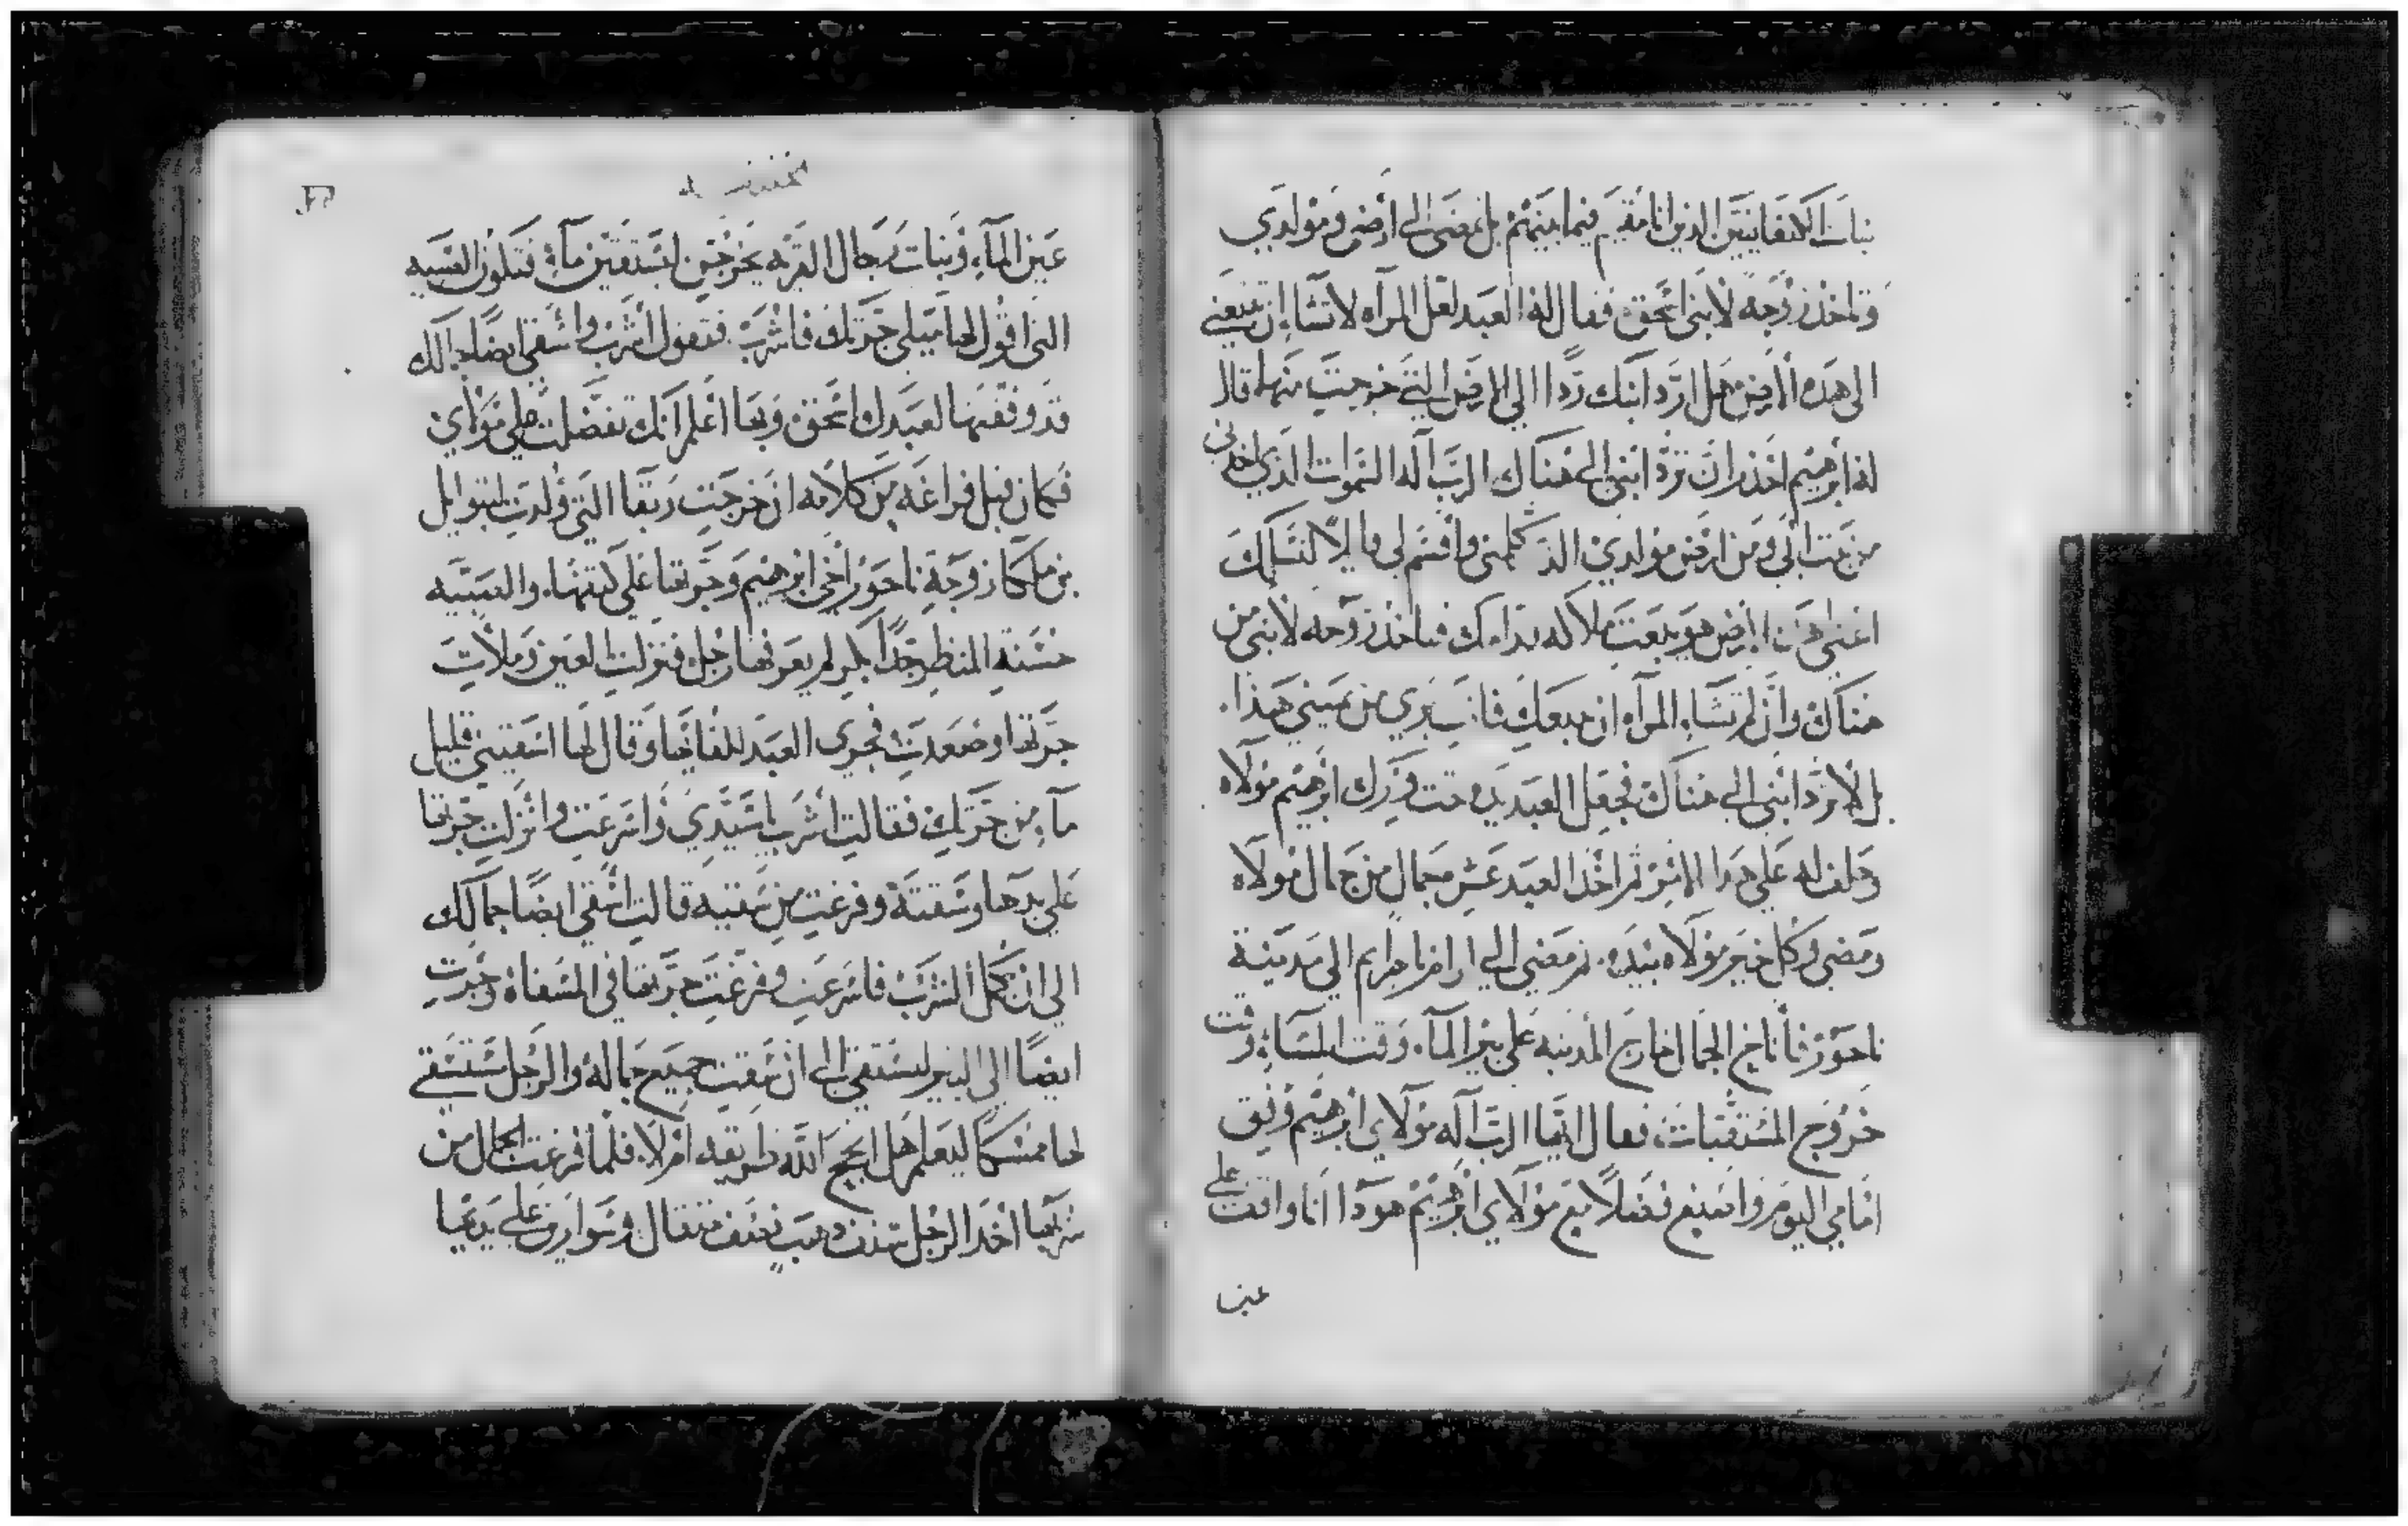 بنات الكنعانيين الذين انا مقيم فيما بينهم بل تمضى الى أرضى ومولدي
وتاخذ زوجه لابنى اسحق فقال له العبد لعل المرآه لا تشاء ان تتبعنى
الى هذه الارض هل ارد ابنك ردا الى الارض التي خرجت منها قال
له ابرهيم احذر ان ترد ابنى الى هناك الرب آله السموات الذي اخذنى
من بيت ابى ومن ارض مولدي الذ كلمنى واقسم لى قايلا لنسلك
اعطى هذه الارض هو يبعث ملاكه قدامك فتاخذ زوجه لابنى من
هناك وان لم تشاء المرآه ان تتبعك فانت بري من يمينى هذا
بل لا ترد ابنى الى هناك فجعل العبد يده تحت ورك ابرهيم مولاه
وحلف له على هذا الامر ثم اخذ العبد عشر جمال من جمال مولاه
ومضى وكل خير مولاه بيده ثم مضى الى ارام نا حرايم الى مدينة
ناحور فأناخ الجمال خارج المدينه على بير المآء وقت المسآء وقت
خروج المستقيات فقال ايها الرب آله مولاي ابرهيم وفق
امامي اليوم واصنع فضلا مع مولاي ابرهيم هوذا انا واقف على
عين
عين المآء وبنات رجال القريه يخرجن ليستقين مآء فتكون الصبيه
التى اقول لها ميلى جرتك فاشرب فتقول اشرب واسقى ايضا جمالك
قد وفقتها لعبدك اسحق وبها اعلم انك تفضلت على مولاي
فكان قبل فراغه من كلامه اذ خرجت ربقا التى ولدت لبتوايل
بن ملكا زوجة ناحور اخى ابرهيم وجرتها على كتفها والصبيه
حسنة المنظر جدا بكر لم يعرفها رجل فنزلت العين وملأت
جرتها وصعدت فجرى العبد للقايها وقال لها اسقينى قليل
مآء من جرتك فقالت اشرب يا سيدي واسرعت وانزلت جرتها
على يدها وسقته وفرغت من سقيه قالت اسقى ايضا جمالك
الى ان يكمل الشرب فاسرعت وفرغت جرتها في المسقاه وجرت
ايضا الى البير لتستقى الى ان سقت جميع جماله والرجل مستسقى
لها ممسكا ليعلم هل انجح الله طريقه ام لا فلما فرغت الجمال من
شربها اخذ الرجل شنف دهب نصف مثقال وسوارين على يديها